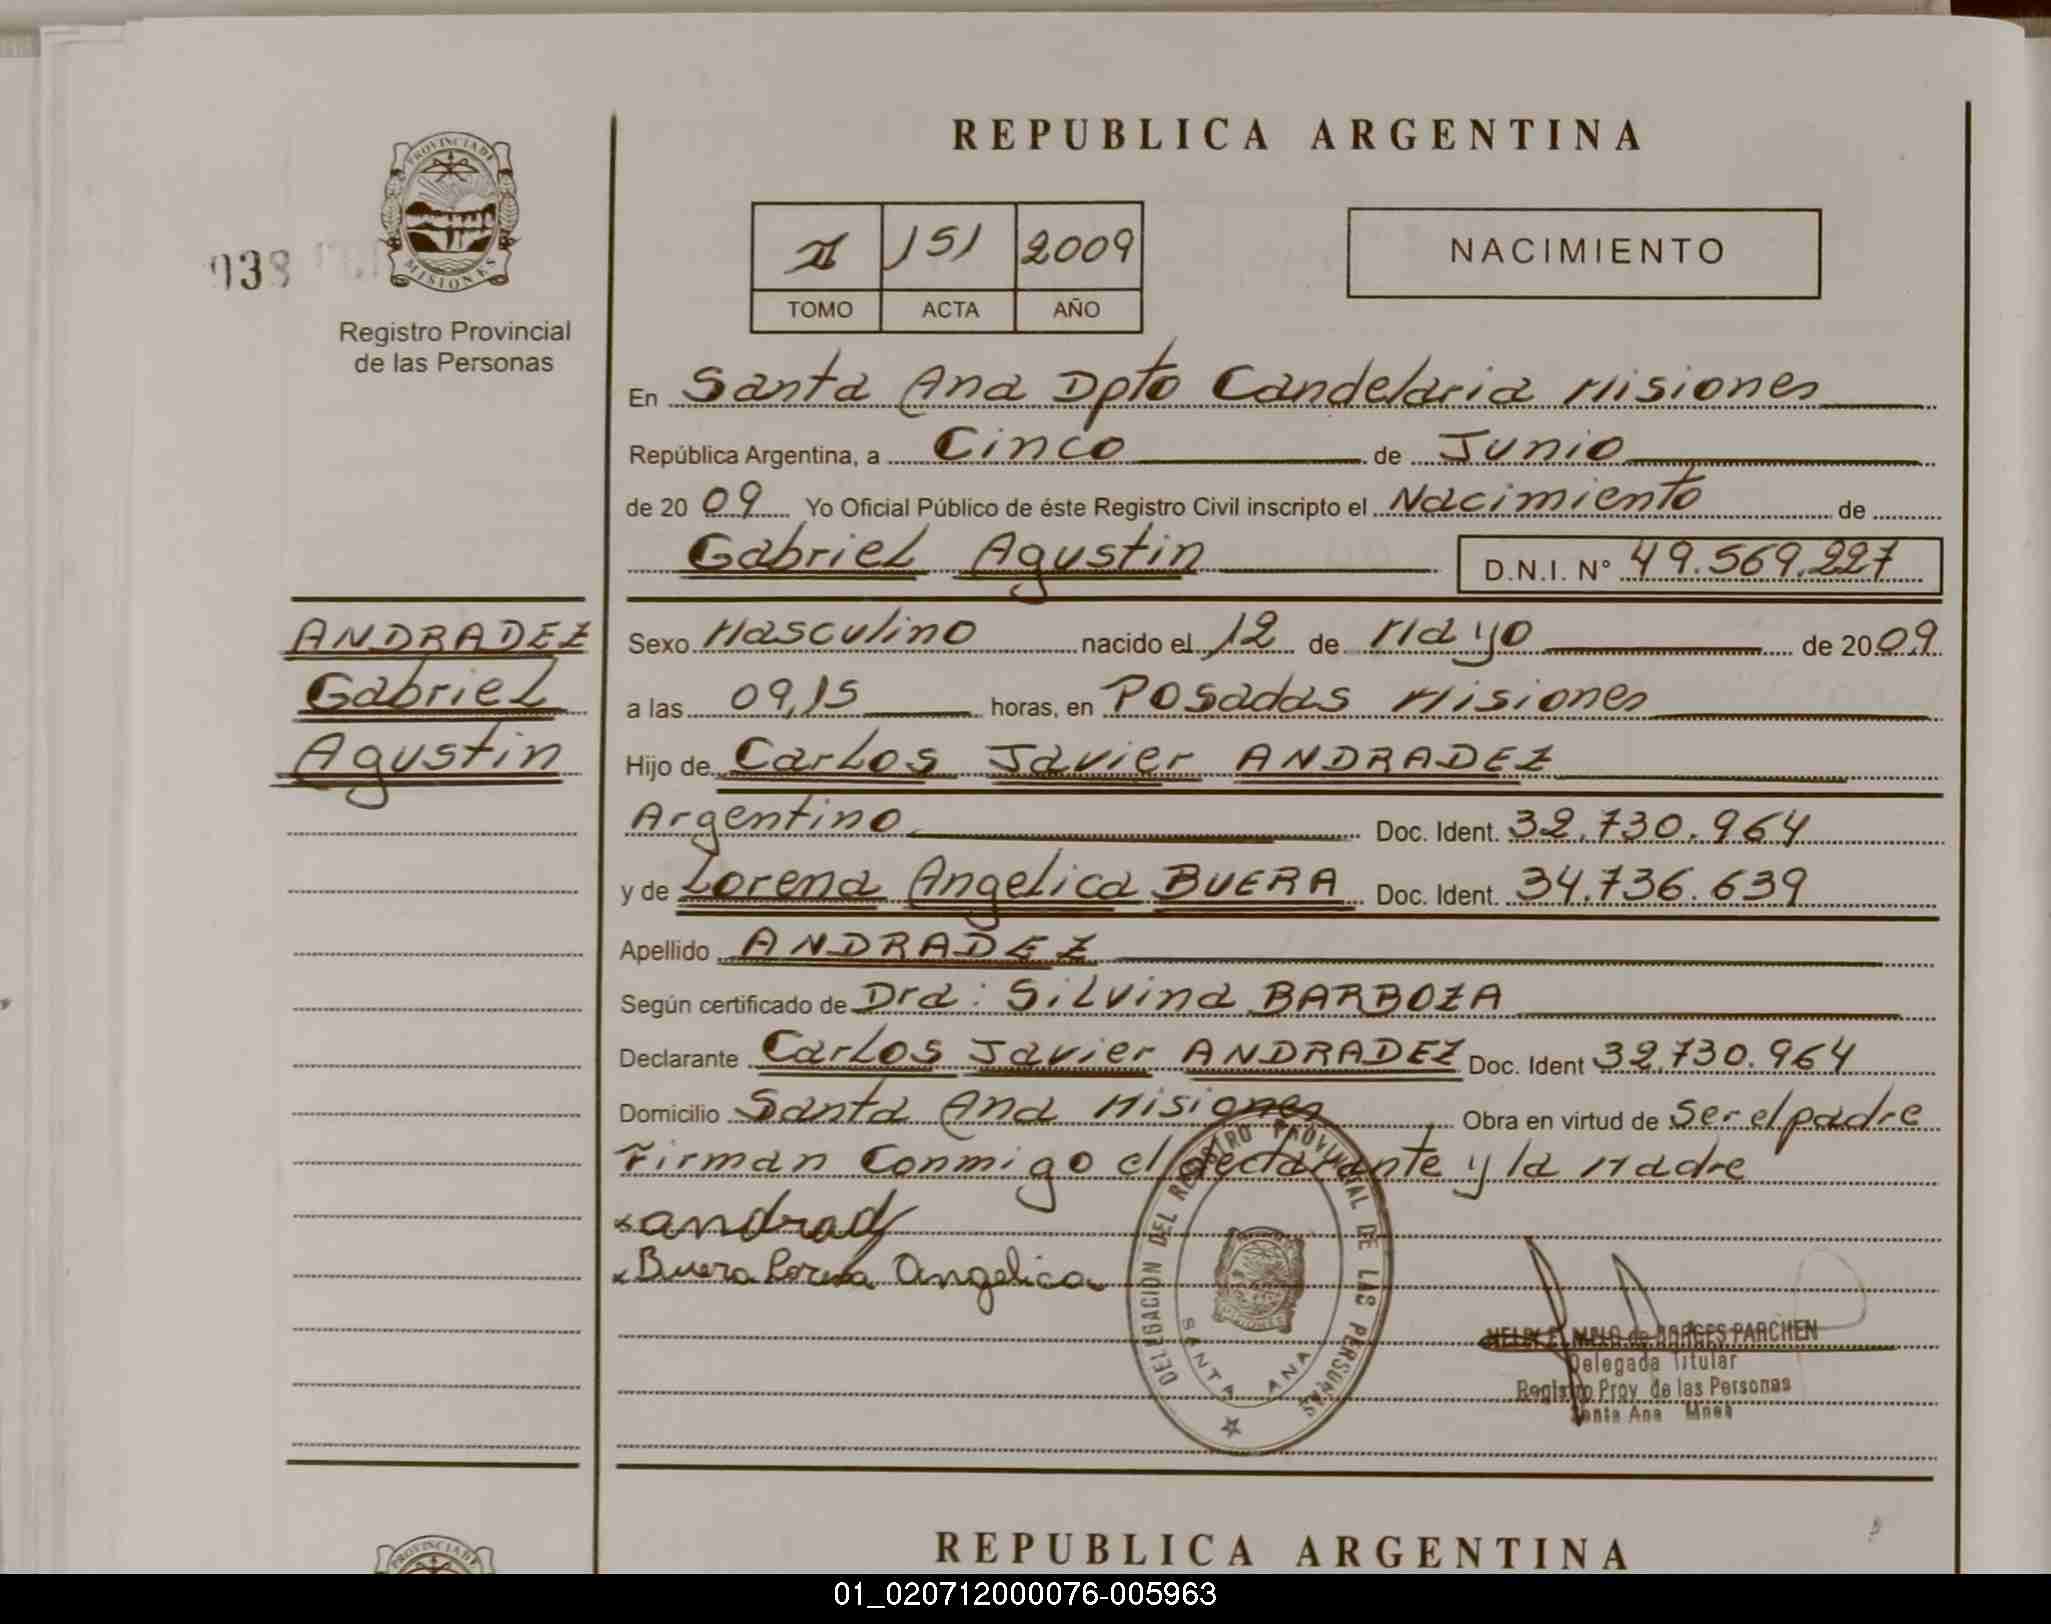 REPUBLICA ARGENTINA
PROVINCIA DE MISIONES
938
Registro Provincial
de las Personas
II 151 2009
TOMO ACTA AÑO
NACIMIENTO
En Santa Ana Dpto Candelaria Misiones
República Argentina, a Cinco de Junio
de 20 09 Yo Oficial Público de éste Registro Civil inscripto el Nacimiento de
Gabriel Agustin D.N.I. N° 49.569.227
ANDRADEZ
Gabriel
Agustin
Sexo Masculino nacido el 12 de Mayo de 20 09
a las 09,15 horas, en Posadas Misiones
Hijo de Carlos Javier ANDRADEZ
Argentino Doc. Ident. 32.730.964
y de Lorena Angelica BUERA Doc. Ident. 34.736.639
Apellido ANDRADEZ
Según certificado de Dra: Silvina BARBOZA
Declarante Carlos Javier ANDRADEZ Doc. Ident 32.730.964
Domicilio Santa Ana Misiones Obra en virtud de Ser el padre
Firman Conmigo el declarante y la Madre
x andrad
x Buera Lorena Angelica
DELEGACION DEL REGISTRO PROVINCIAL DE LAS PERSONAS
SANTA ANA
MELO de BORGES PARCHEN
Delegada Titular
Registro Prov. de las Personas
Santa Ana Mnes
REPUBLICA ARGENTINA
PROVINCIA DE
01_020712000076-005963